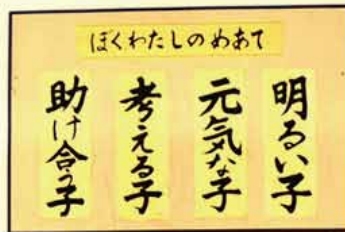 ぼくわたしのめあて
明るい子
元気な子
考える子
助け合う子